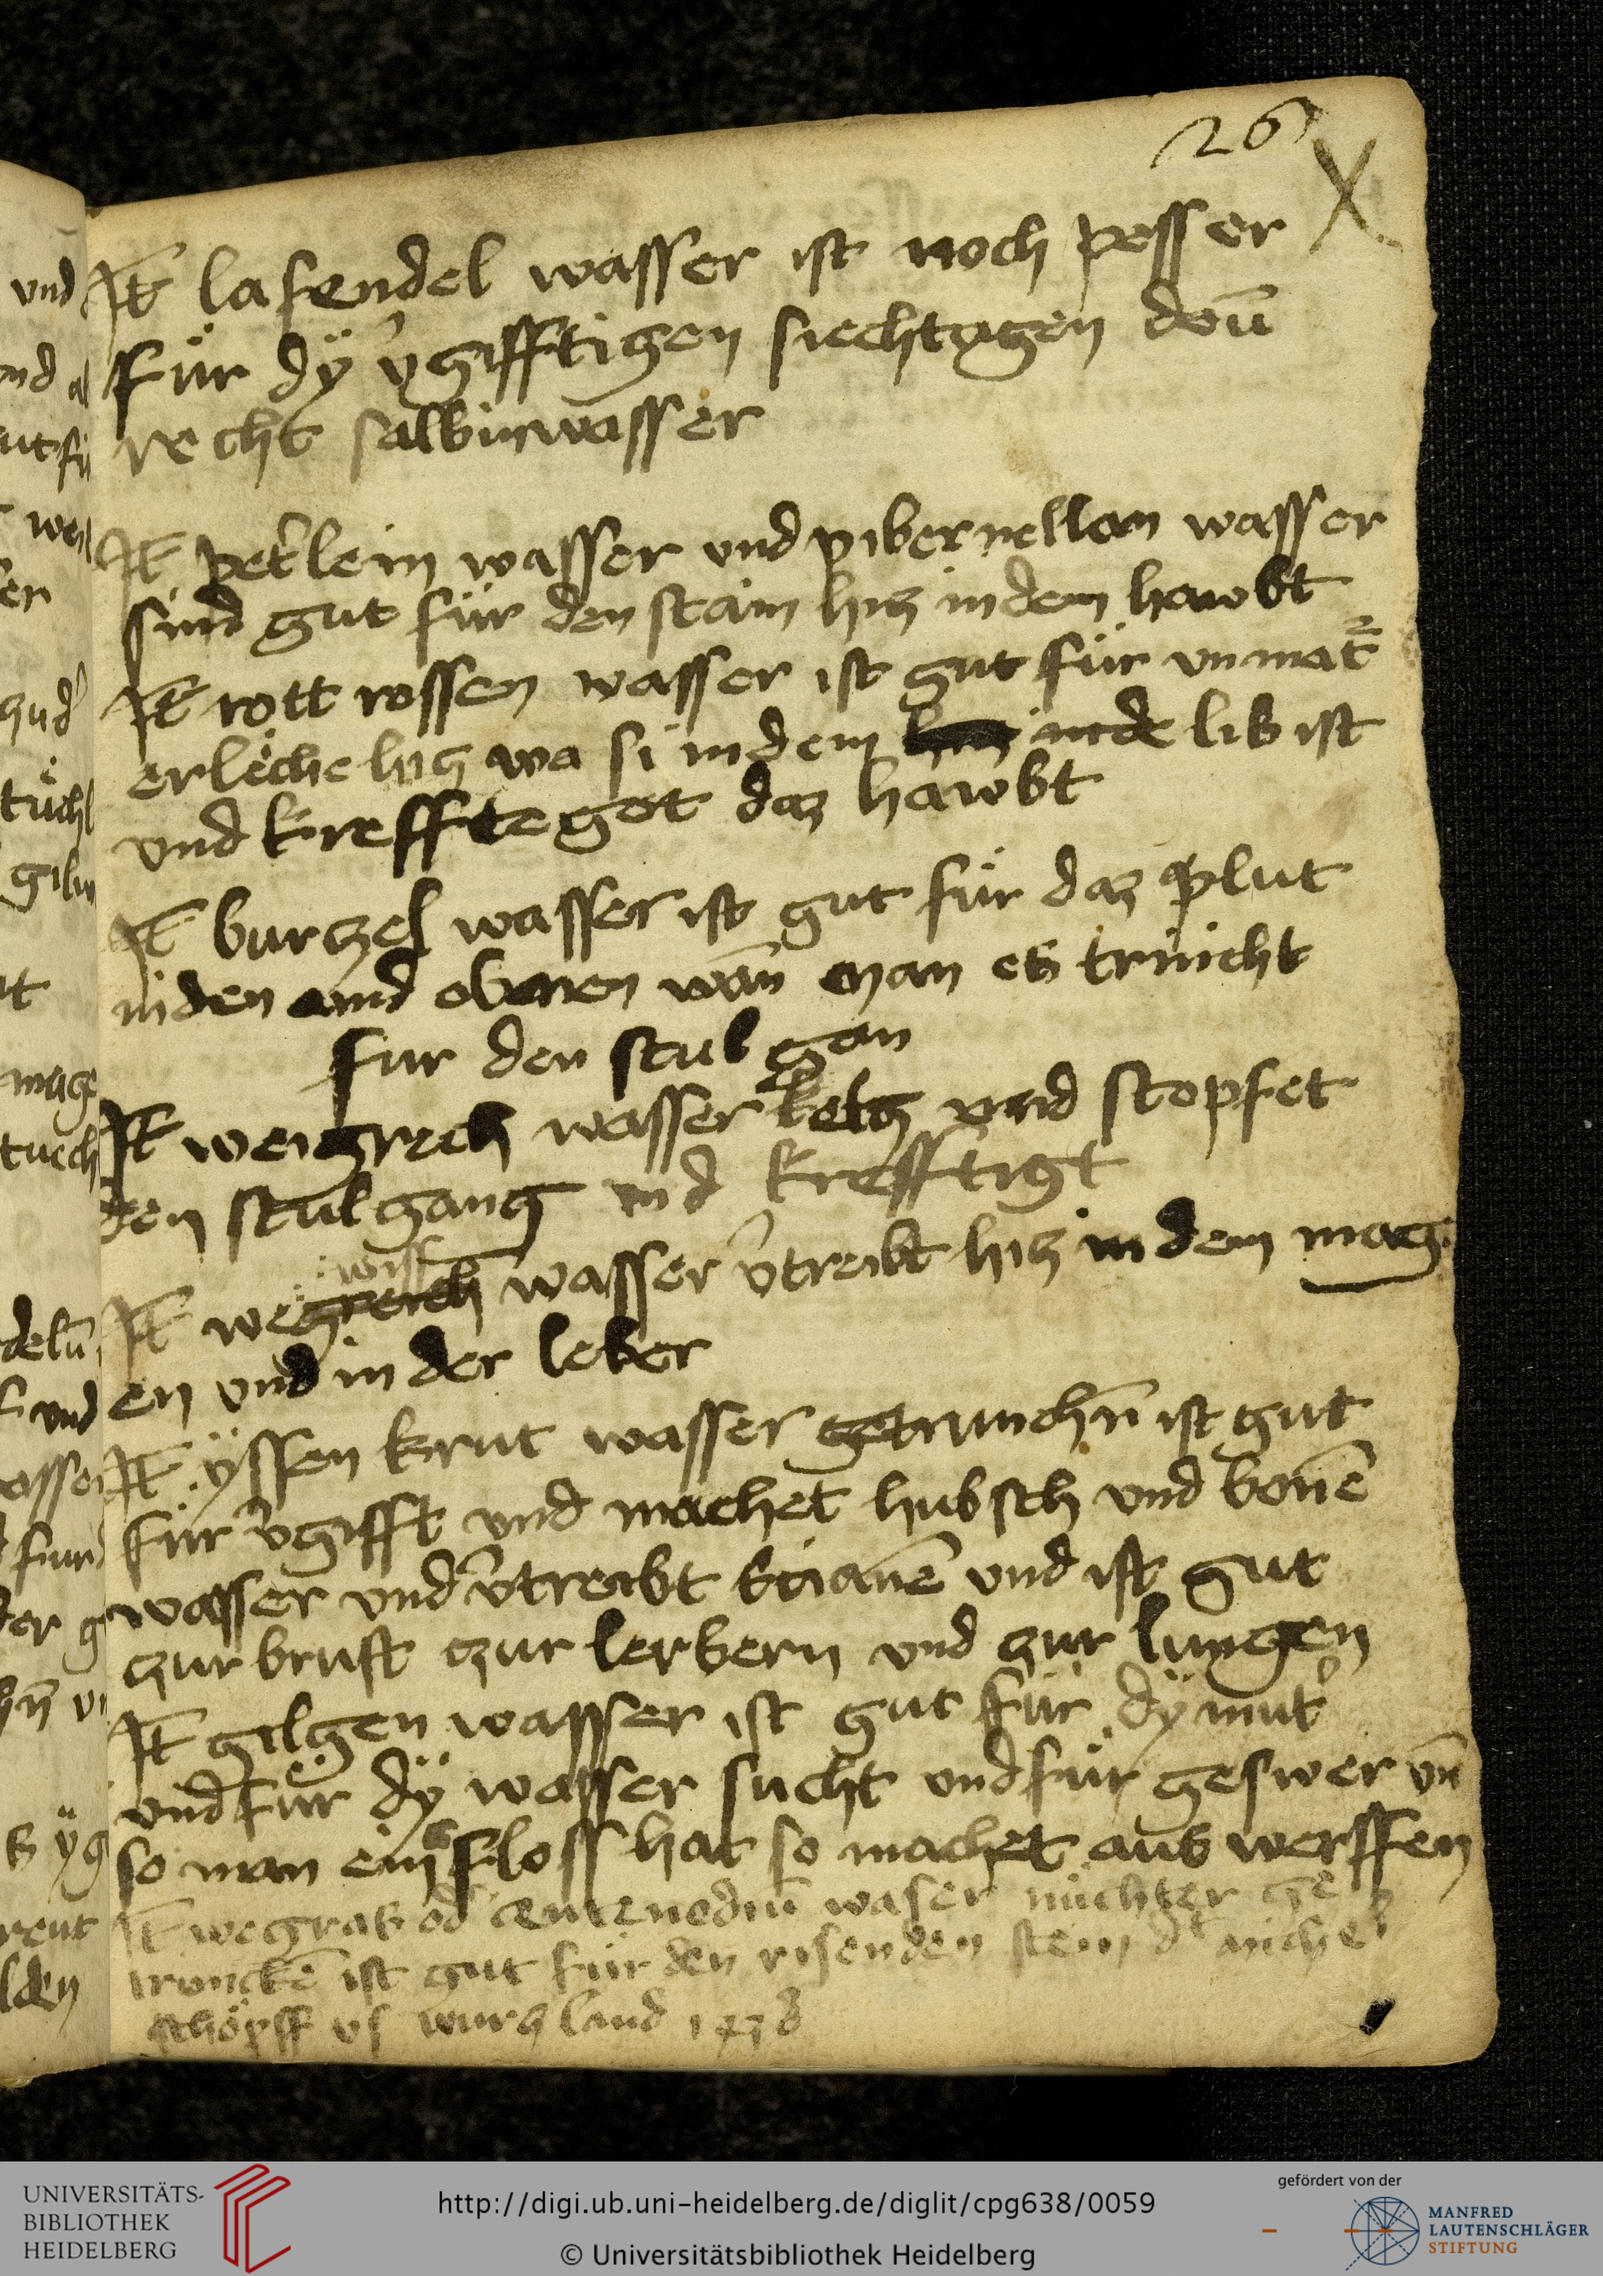 26
X
It̄ lafendel wasser ist noch pesser
für dÿ v̾gifftigen siechtagen den̄
recht salbinwasser
It̄ pet̾lein wasser und pibernellen wasser
sind gut für den stain hiz in dem hawbt
It̄ rott rossen wasser ist gut für vnmat̾
erleche hiz wa si in dem lib ist
vnd kreffteget daz hawbt
It̄ burczel wasser ist gut für daz plut
in den oberen wan̄ man es trincht
fur den stul gan
It̄ weigrech wasser kelz vnd stopfet
den stulgang vnd krefftigt
wiss
It̄ wegreich wasser v̾treibt hiz in dem mag
en vnd in der leber
It̄ ÿssen krut wasser getrunchn̄ ist gut
für v̾gifft vnd machet hubsch vnd
wasser vnd v̾treibt vnd ist gut
zur brust zur lerbern vnd zur lungen
It̄ gilgen wasser ist gut für dÿ mut̾
vnd für dÿ wasser sucht vnd für geswer vn̄
so man ein floss hat so machet aus werffen
It̄ wegras od̾ waser nüchter ge
truncken̄ ist gut für den risenden stein
schöpff vs land
und
http://digi.ub.uni-heidelberg.de/diglit/cpg638/0059
© Universitätsbibliothek Heidelberg
UNIVERSITÄTS-
BIBLIOTHEK
HEIDELBERG
gefördert von der
MANFRED
LAUTENSCHLÄGER
STIFTUNG